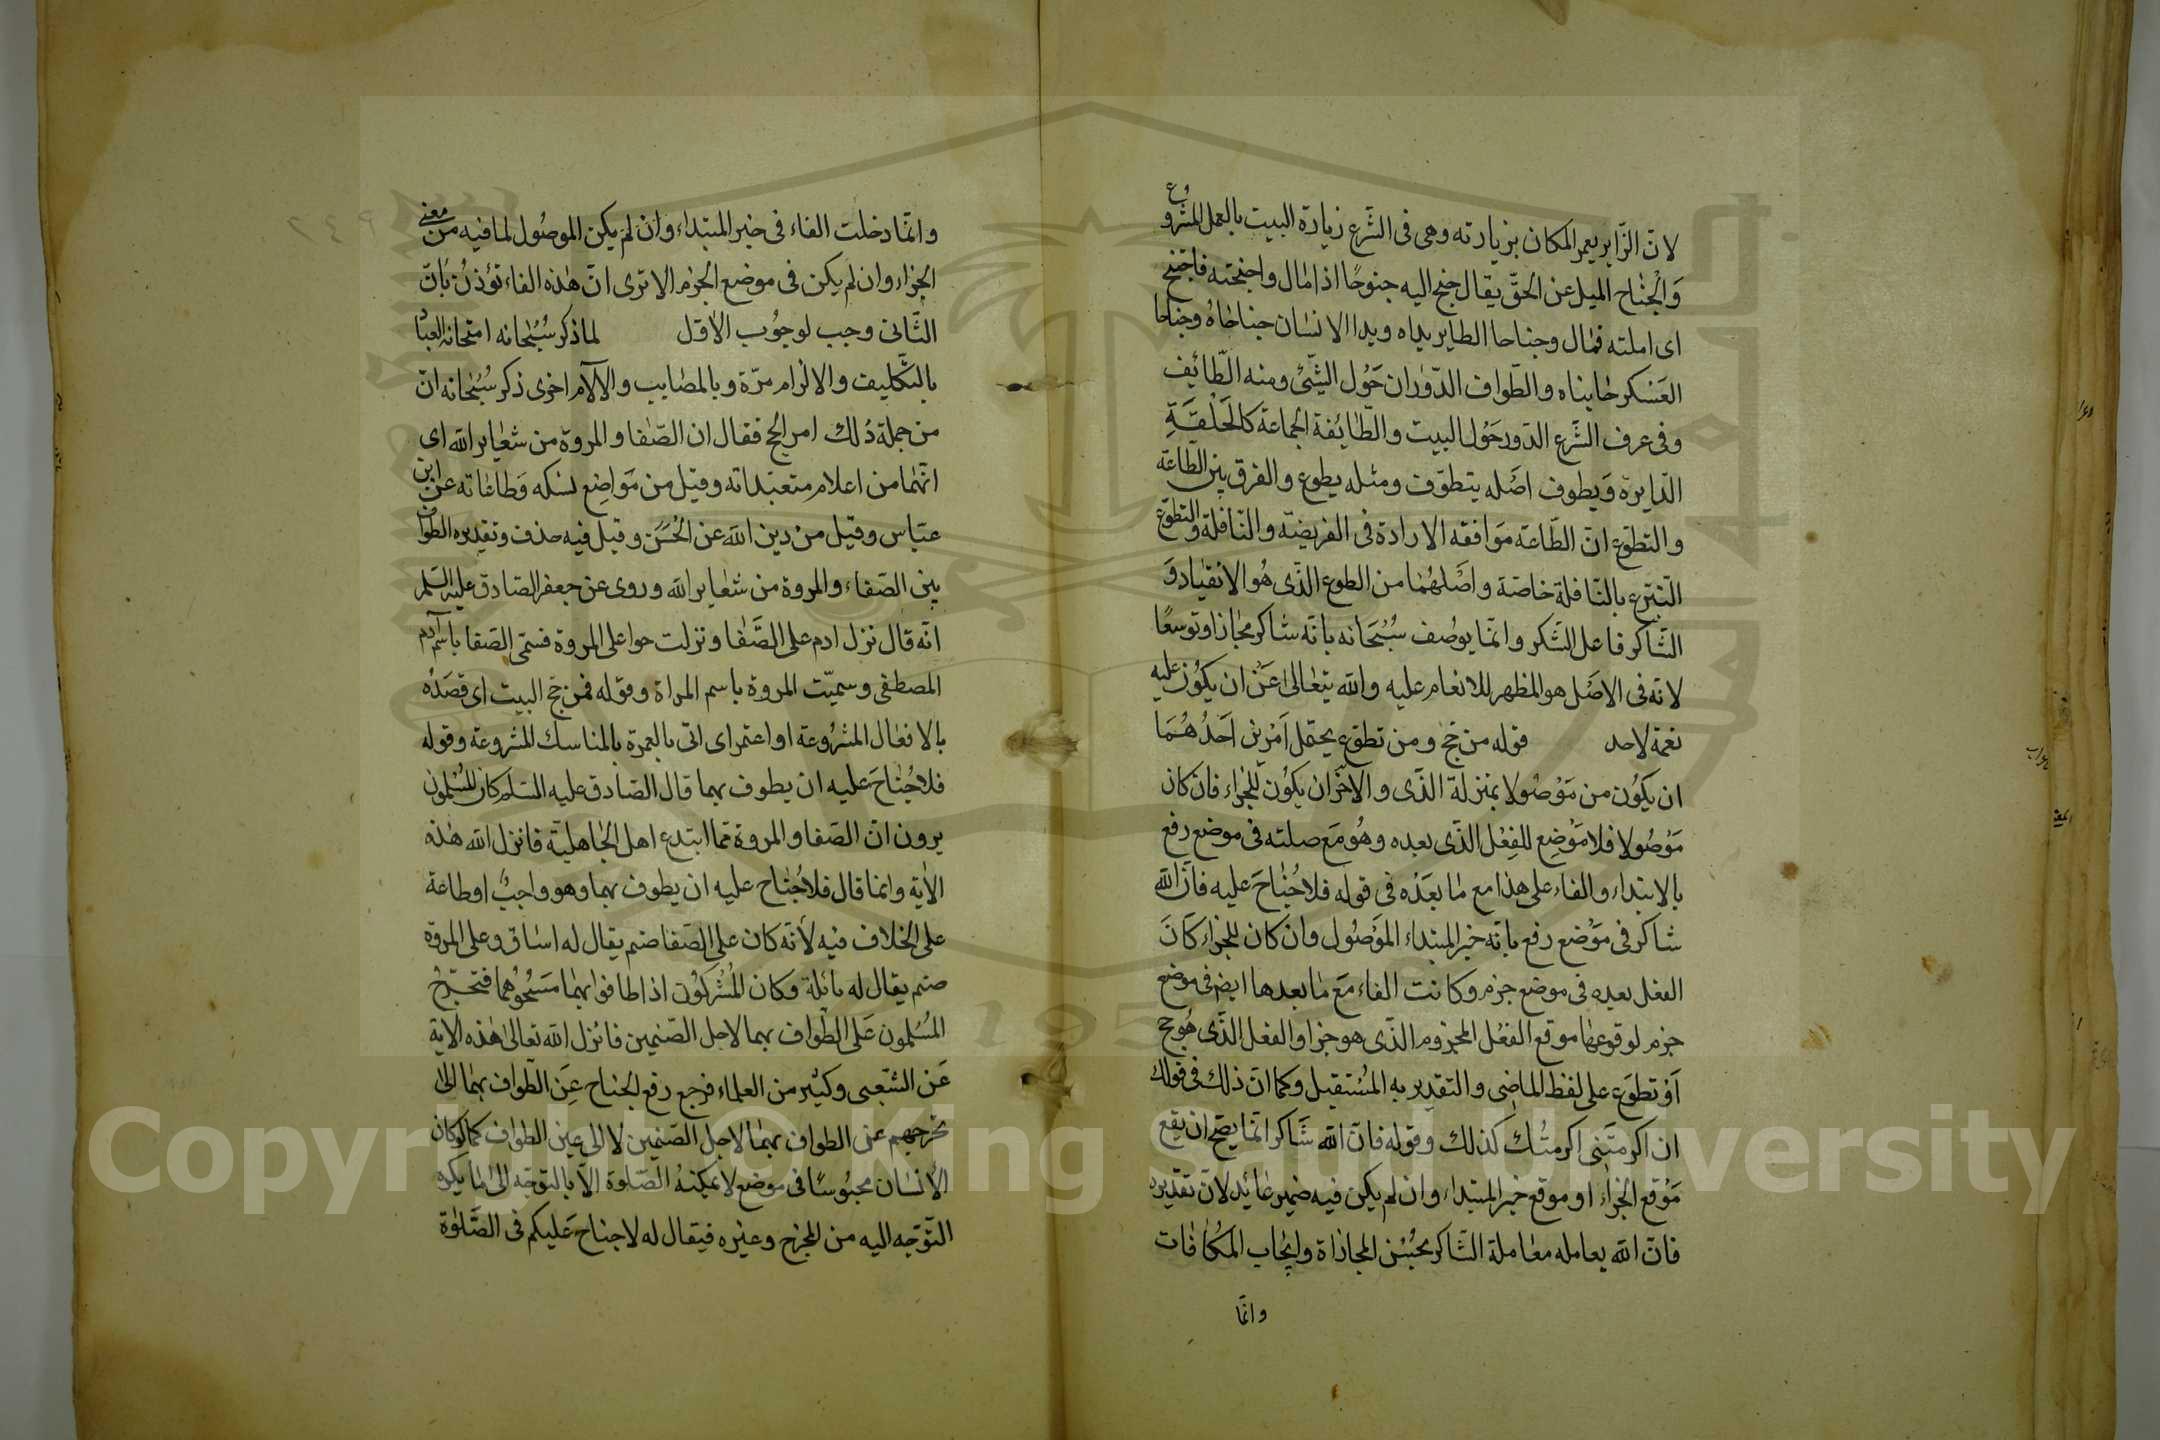 لان الزاير يعمر المكان بزيارته وهى فى الشرع زيارة البيت بالعمل المشروع
والجناح الميل عن الحق يقال جنح اليه جنوحا اذا مال واجنحته فاجتنح
اى املته فمال وجناحا الطاير يداه ويدا الانسان جناحاه وجناحا
العسكر جانباه والطواف الدوران حول الشئ ومنه الطائيف
وفى عرف الشرع الدور حول البيت والطائيفة الجماعة كالحلقة
الدايرة ويطوف اصله يتطوف ومثله يطوع والفرق بين الطاعة
والتطوع ان الطاعة موافقة الارادة فى الفريضة والنافلة والتطوع
التبرع بالنافلة خاصة واصلهما من الطوع الذى هو الانقياد و
الشاكر فاعل الشكر وانما يوصف سبحانه بانه شاكر مجازا وتوسعا
لانه فى الاصل هو المظهر للانعام عليه والله يتعالى عن ان يكون عليه
نعمة لاحد قوله من حج ومن تطوع يحتمل امرين احدهما
ان يكون من موصولا بمنزلة الذى والاخر ان يكون للجزاء فان كان
موصولا فلا موضع للفعل الذى بعده وهو مع صلته فى موضع رفع
بالابتداء والفاء على هذا مع ما بعده فى قوله فلا جناح عليه فان الله
شاكر فى موضع رفع بانه خبر المبتداء الموصول وان كان للجزاء كان
الفعل بعده فى موضع جزم وكانت الفاء مع ما بعدها ايضا فى موضع
جزم لوقوعها موقع الفعل المجزوم الذى هو جزا والفعل الذى هو حج
او تطوع على لفظ الماضى والتقدير به المستقبل وكما ان ذلك فى قولك
ان اكرمتنى اكرمتك كذلك وقوله فان الله شاكر انما يصح ان يقع
موقع الجزاء او موقع خبر المبتداء وان لم يكن فيه ضمير عائيد لان تقديره
فان الله يعامله معاملة الشاكر بحسن المجازاة وايجاب المكافات
وانما
وانما دخلت الفاء فى خبر المبتداء وان لم يكن الموصول لما فيه من معنى
الجزاء وان لم يكن فى موضع الجزم الا ترى ان هذه الفاء تؤذن بان
الثانى وجب لوجوب الاول لما ذكر سبحانه امتحانه العباد
بالتكليف والالزام مرة وبالمصايب والالام اخرى ذكر سبحانه ان
من جملة ذلك امر الحج فقال ان الصفا والمروة من شعاير الله اى
انهما من اعلام متعبداته وقيل من مواضع نسكه وطاعاته عن ابن
عباس وقيل من دين الله عن الحسن وقيل فيه حذف وتقديره الطواف
بين الصفاء والمروة من شعاير الله وروى عن جعفر الصادق عليه السلم
انه قال نزل ادم على الصفا ونزلت حوا على المروة فسمى الصفا باسم ادم
المصطفى وسميت المروة باسم المراة وقوله فمن حج البيت اى قصده
بالافعال المشروعة او اعتمر اى اتى بالعمرة بالمناسك المشروعة وقوله
فلا جناح عليه ان يطوف بهما قال الصادق عليه السلم كان المسلمون
يرون ان الصفا والمروة مما ابتدع اهل الجاهلية فانزل الله هذه
الاية وانما قال فلا جناح عليه ان يطوف بهما وهو واجب او طاعة
على الخلاف فيه لانه كان على الصفا صنم يقال له اساف وعلى المروة
صنم يقال له نائلة وكان المشركون اذا طافوا بهما مسحوهما فتحرج
المسلمون على الطواف بهما لاجل الصنمين فانزل الله تعالى هذه الاية
عن الشعبى وكثير من العلماء فرجع رفع الجناح عن الطواف بهما الى
تحرجهم عن الطواف بهما لاجل الصنمين لا الى عين الطواف كما لو كان
الانسان محبوسا فى موضع لا يمكنه الصلوة الا بالتوجه الى ما يكره
التوجه اليه من المخرج وغيره فيقال له لا جناح عليكم فى الصلوة
Copyright © King Saud University